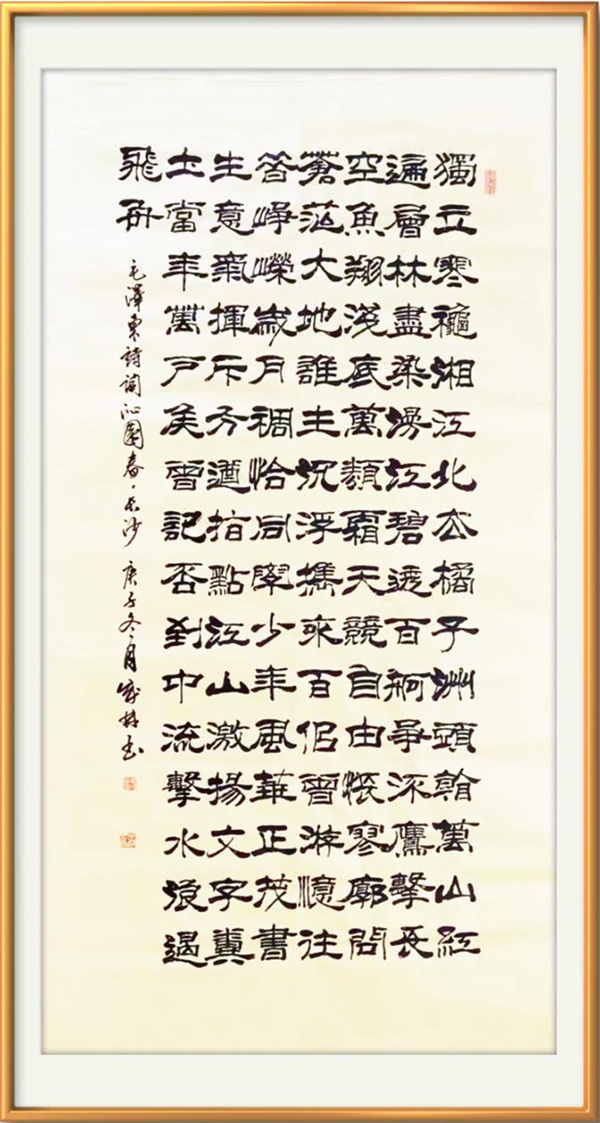 獨立寒龝湘江北去橘子洲頭看萬山紅
遍層林盡染漫江碧透百舸爭流鷹擊長
空魚翔淺底萬類霜天競自由悵寥廓問
蒼茫大地誰主沉浮攜來百侶曾游憶往
昔崢嶸歲月稠恰同學少年風華正茂書
生意氣揮斥方遒指點江山激揚文字糞
土當年萬戶侯曾記否到中流擊水浪遏
飛舟
毛澤東詩詞沁園春·長沙 庚子冬月 林書